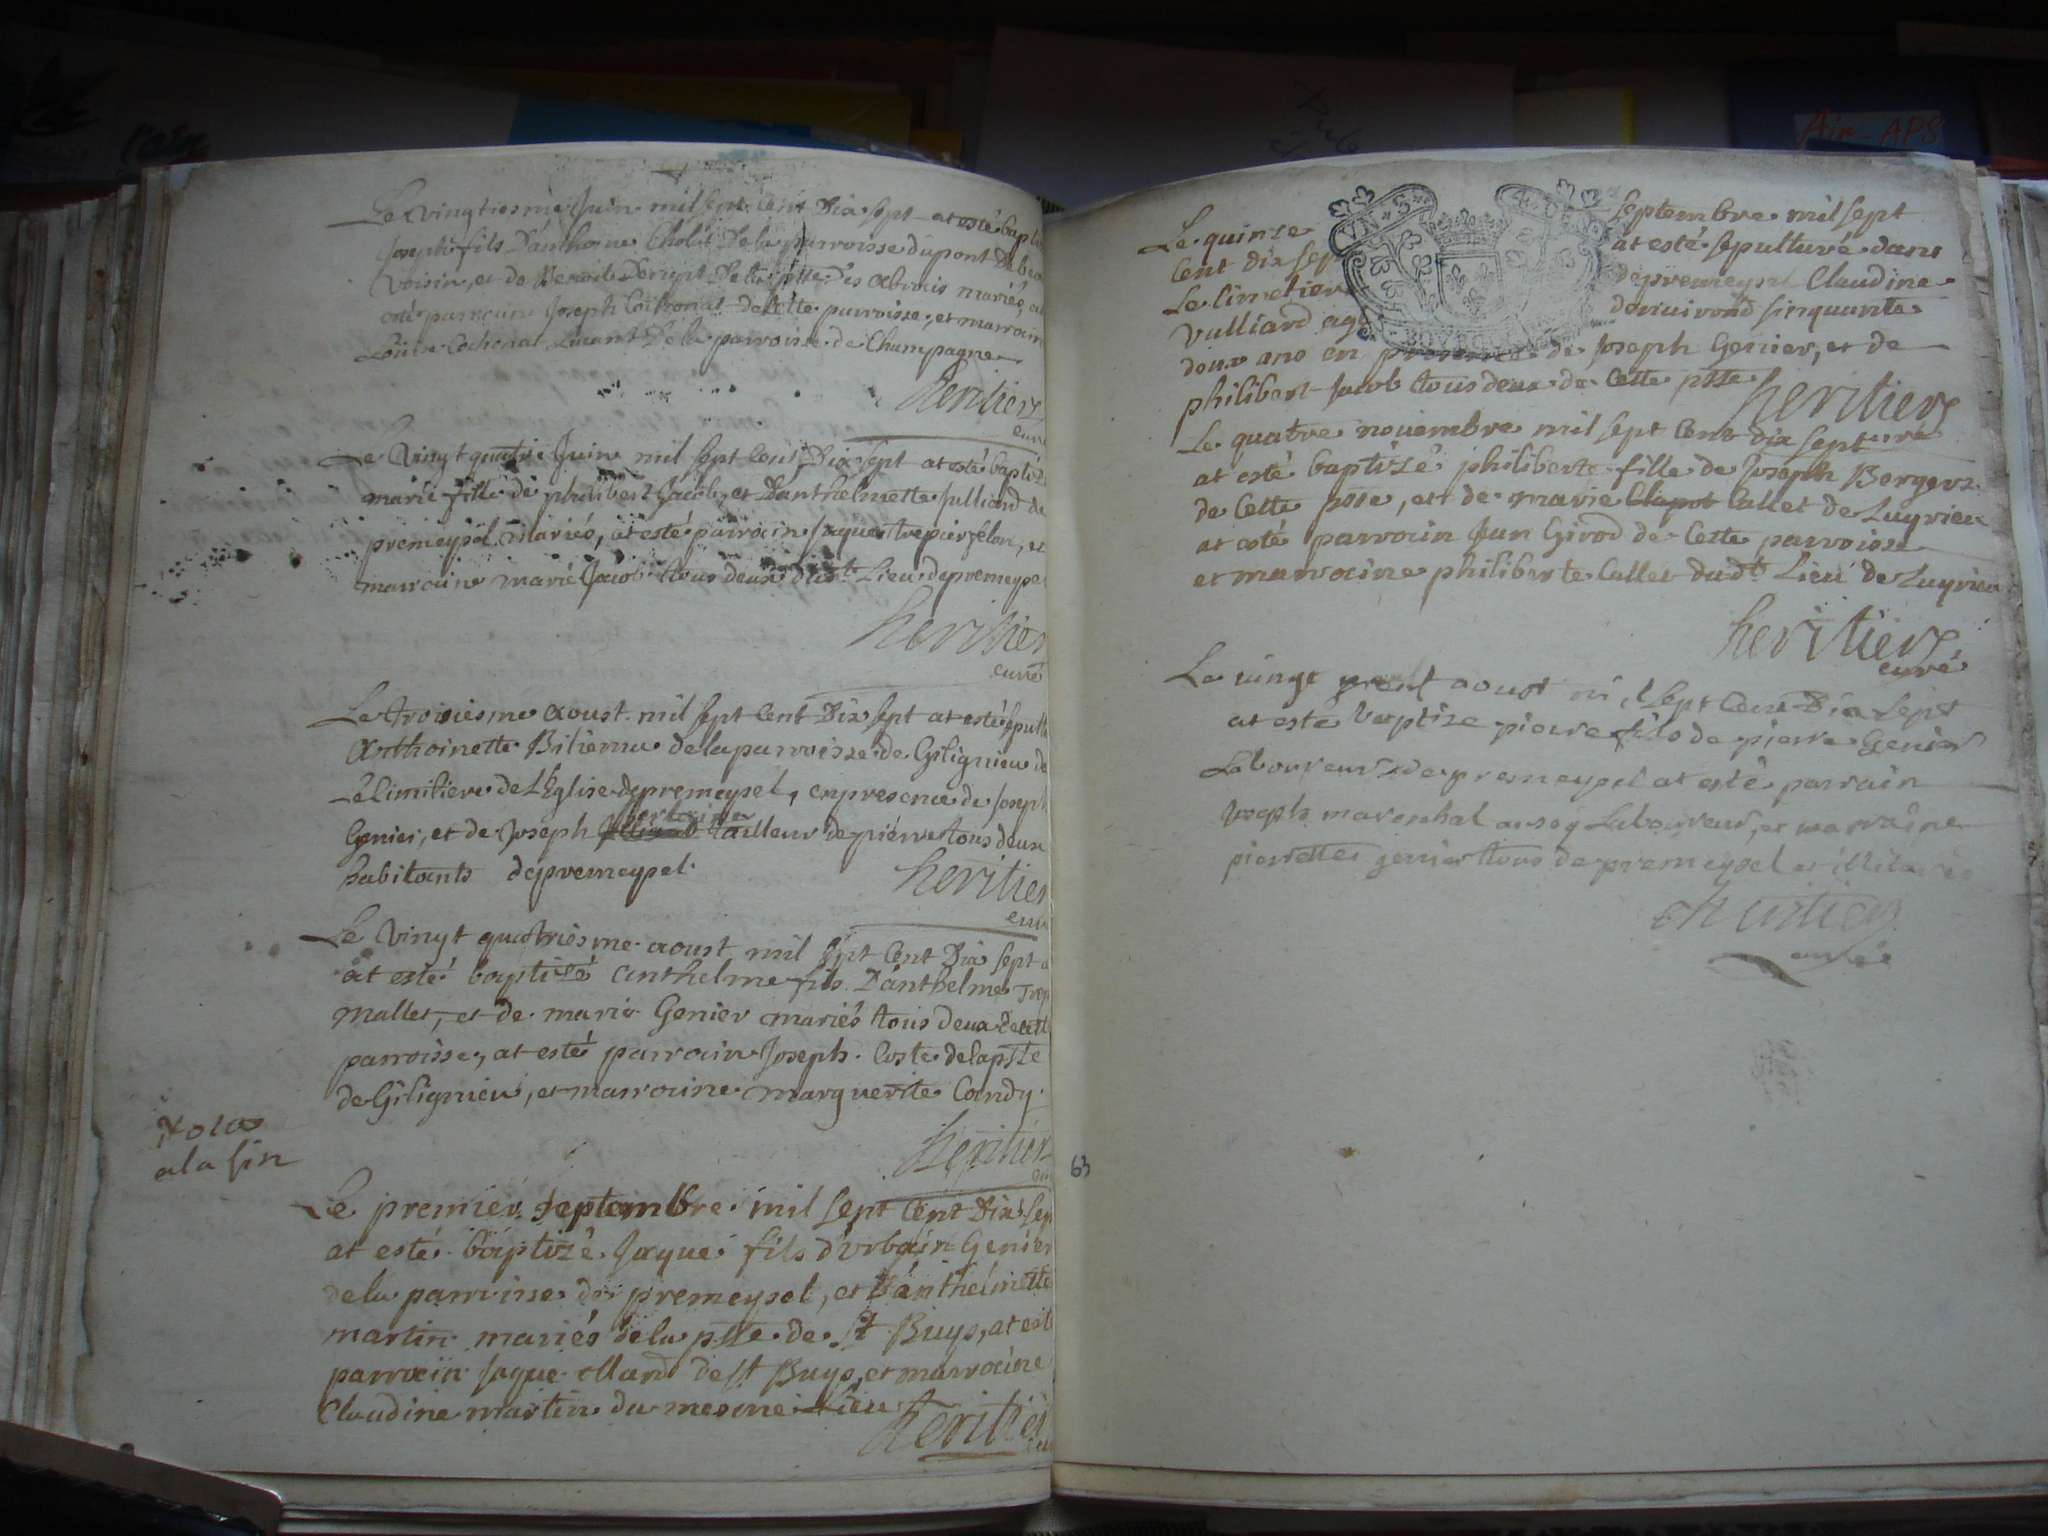 Le vingtiesme Juin mil sept cent Dix sept at esté bapt
Joseph fils Danthoine Cholet De la parroisse du pont De beau
voisin, et de Des Abrais mariés, at
esté parrain Joseph Cochonat De cette parroisse, et marraine
Louise Cochonat De la parroisse de Champagne
heritier
curé
Le Vingt quatre Juin mil sept Cent Dix sept at esté baptizé
marie fille de philibert Jacob, et Danthelmette Julliand de
premeysel mariés, at esté parrain Jaque trepier felon, et
marraine marie Jacob tous deux dudt Lieu de premeyse
heritier
curé
Le troisiesme aoust mil sept Cent Dix sept at esté sepult
Anthoinette de la parroisse de Gilignieu de
Le Cimitiere de L'Eglise de premeysel, en presence de Joseph
Genier, et de Joseph tailleur de pierre tous deux
habitants de premeysel.
heritier
curé
Le Vingt quatriesme aoust mil sept Cent Dix sept
at esté baptizé anthelme fils D'anthelme Trep
mallet, et de marie Genier mariés tous deux de cett
parroisse, at esté parrain Joseph Coste de la psse
de Gilignieu, et marraine marguerite Condy.
heritier
a la fin
Le premier septembre mil sept Cent Dix sep
at esté baptizé Jaque fils d'urbain Genier
de la parroisse de premeysel, et D'anthelmette
martin mariés de la psse de St Buys, at esté
parrain Jaque Allard de st Buys, et marraine
Claudine martin du mesme Lieu
heritier
63
Le quinze septembre mil sept
Cent dix sep at esté sepulturé dans
Le Cimetiere de premeysel Claudine
Vulliard agé d'environ sinquante
deux ans en presence de Joseph Genier, et de
philibert Jacob tous deux de Cette psse
heritier
curé
Le quatre novembre mil sept Cent dix sept
at esté baptizé philiberte fille de Joseph Bergers
de Cette psse, et de marie Clapot Callet de Luyrieu
at esté parrain Jan Girod de Cette parroisse
et marraine philiberte Callet dudt Lieu de Luyrieu
heritier
curé
Le vingt aoust mil sept Cent Dix Sept
at esté baptize pierre fils de pierre Genier
Laboureur de premeysel at esté parrain
Joseph mareschal aussy Laboureur, et marraine
pierrette genier tous de premeysel et illiteres
heritier
curé